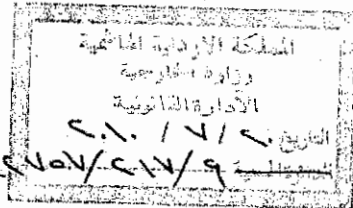 المملكة الاردنية الهاشمية
وزارة الخارجية
الادارة القانونية
التاريخ ٢٠١٠ / ٧ / ٢٠
٩/٢١٧/٢٧٥٧